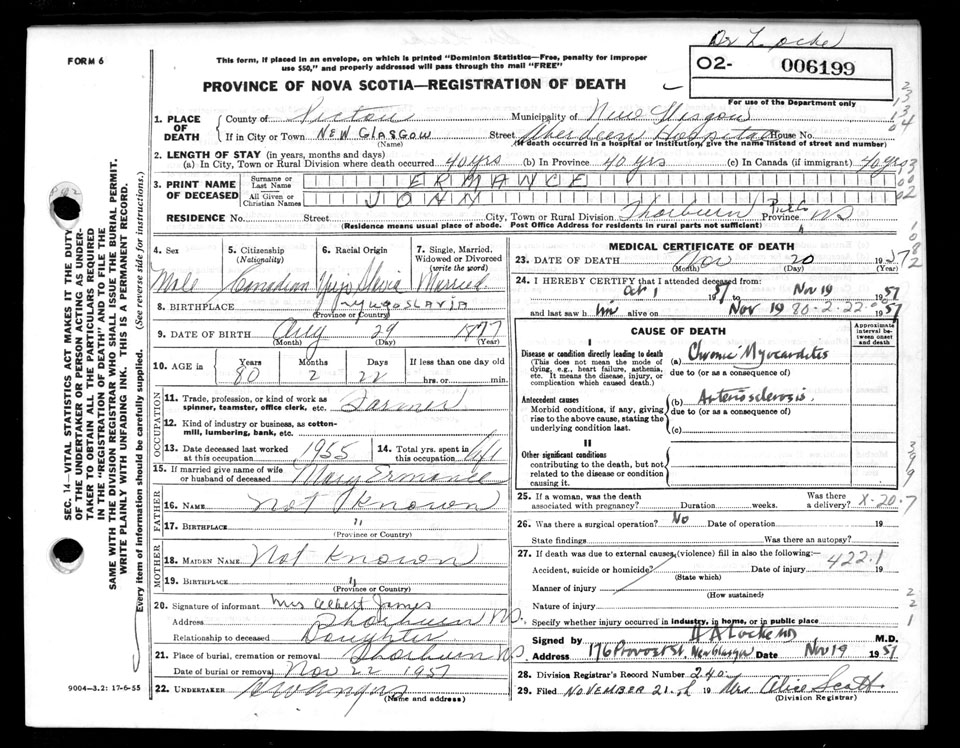 FORM 6
Dr Locke
This form, if placed in an envelope, on which is printed "Dominion Statistics—Free, penalty for improper
use $50," and properly addressed will pass through the mail "FREE"
02- 006199
PROVINCE OF NOVA SCOTIA—REGISTRATION OF DEATH
For use of the Department only
1. PLACE OF DEATH
County of Pictou Municipality of New Glasgow
If in City or Town NEW GLASGOW Street Aberdeen Hospital House No.
(Name) (If death occurred in a hospital or institution, give the name instead of street and number)
2. LENGTH OF STAY (in years, months and days)
(a) In City, Town or Rural Division where death occurred 40 yrs (b) In Province 40 yrs (c) In Canada (if immigrant) 40 yrs
3. PRINT NAME OF DECEASED
Surname or Last Name ERMANCE
All Given or Christian Names JOHN
RESIDENCE No. Street City, Town or Rural Division Thorburn Province NS
(Residence means usual place of abode. Post Office Address for residents in rural parts not sufficient)
4. Sex
Male
5. Citizenship
(Nationality)
Canadian
6. Racial Origin
Yugo Slavia
7. Single, Married,
Widowed or Divorced
(write the word)
Married
8. BIRTHPLACE Yugoslavia
(Province or Country)
9. DATE OF BIRTH Aug 29 1877
(Month) (Day) (Year)
10. AGE in
Years Months Days If less than one day old
80 2 22 hrs. or min.
OCCUPATION
11. Trade, profession, or kind of work as
spinner, teamster, office clerk, etc. Farmer
12. Kind of industry or business, as cotton-
mill, lumbering, bank, etc.
13. Date deceased last worked
at this occupation 1955
14. Total yrs. spent in
this occupation
15. If married give name of wife
or husband of deceased Mary Ermance
FATHER
16. NAME Not Known
17. BIRTHPLACE "
(Province or Country)
MOTHER
18. MAIDEN NAME Not Known
19. BIRTHPLACE "
(Province or Country)
20. Signature of informant Mrs Albert James
Address Thorburn NS
Relationship to deceased Daughter
21. Place of burial, cremation or removal Thorburn NS
Date of burial or removal Nov 22 1957
22. UNDERTAKER
(Name and address)
9004—3.2: 17-6-55
SEC. 14—VITAL STATISTICS ACT MAKES IT THE DUTY
OF THE UNDERTAKER OR PERSON ACTING AS UNDER-
TAKER TO OBTAIN ALL THE PARTICULARS REQUIRED
IN THE "REGISTRATION OF DEATH" AND TO FILE THE
SAME WITH THE DIVISION REGISTRAR WHO SHALL ISSUE THE BURIAL PERMIT.
WRITE PLAINLY WITH UNFADING INK. THIS IS A PERMANENT RECORD.
Every item of information should be carefully supplied. (See reverse side for instructions.)
MEDICAL CERTIFICATE OF DEATH
23. DATE OF DEATH Nov 20 1957
(Month) (Day) (Year)
24. I HEREBY CERTIFY that I attended deceased from:
Oct 1 1957 Nov 19 1957
and last saw him alive on Nov 19 80-2-22 1957
CAUSE OF DEATH
Approximate
interval be-
tween onset
and death
I
Disease or condition directly leading to death
(This does not mean the mode of
dying, e.g., heart failure, asthenia,
etc. It means the disease, injury, or
complication which caused death.)
(a) Chronic Myocarditis
due to (or as a consequence of)
Antecedent causes
Morbid conditions, if any, giving
rise to the above cause, stating the
underlying condition last.
(b) Arteriosclerosis.
due to (or as a consequence of)
(c)
II
Other significant conditions
contributing to the death, but not
related to the disease or condition
causing it.
25. If a woman, was the death
associated with pregnancy? Duration weeks. Was there
a delivery? X-20-7
26. Was there a surgical operation? No Date of operation 19
State findings Was there an autopsy?
27. If death was due to external causes (violence) fill in also the following:—
Accident, suicide or homicide? Date of injury 19 422.1
(State which)
Manner of injury
(How sustained)
Nature of injury
Specify whether injury occurred in industry, in home, or in public place
Signed by H A Locke MD M.D.
Address 176 Provost St, New Glasgow Date Nov 19 1957
28. Division Registrar's Record Number 240
29. Filed NOVEMBER 21 19 Mrs Alice Scott.
(Division Registrar)